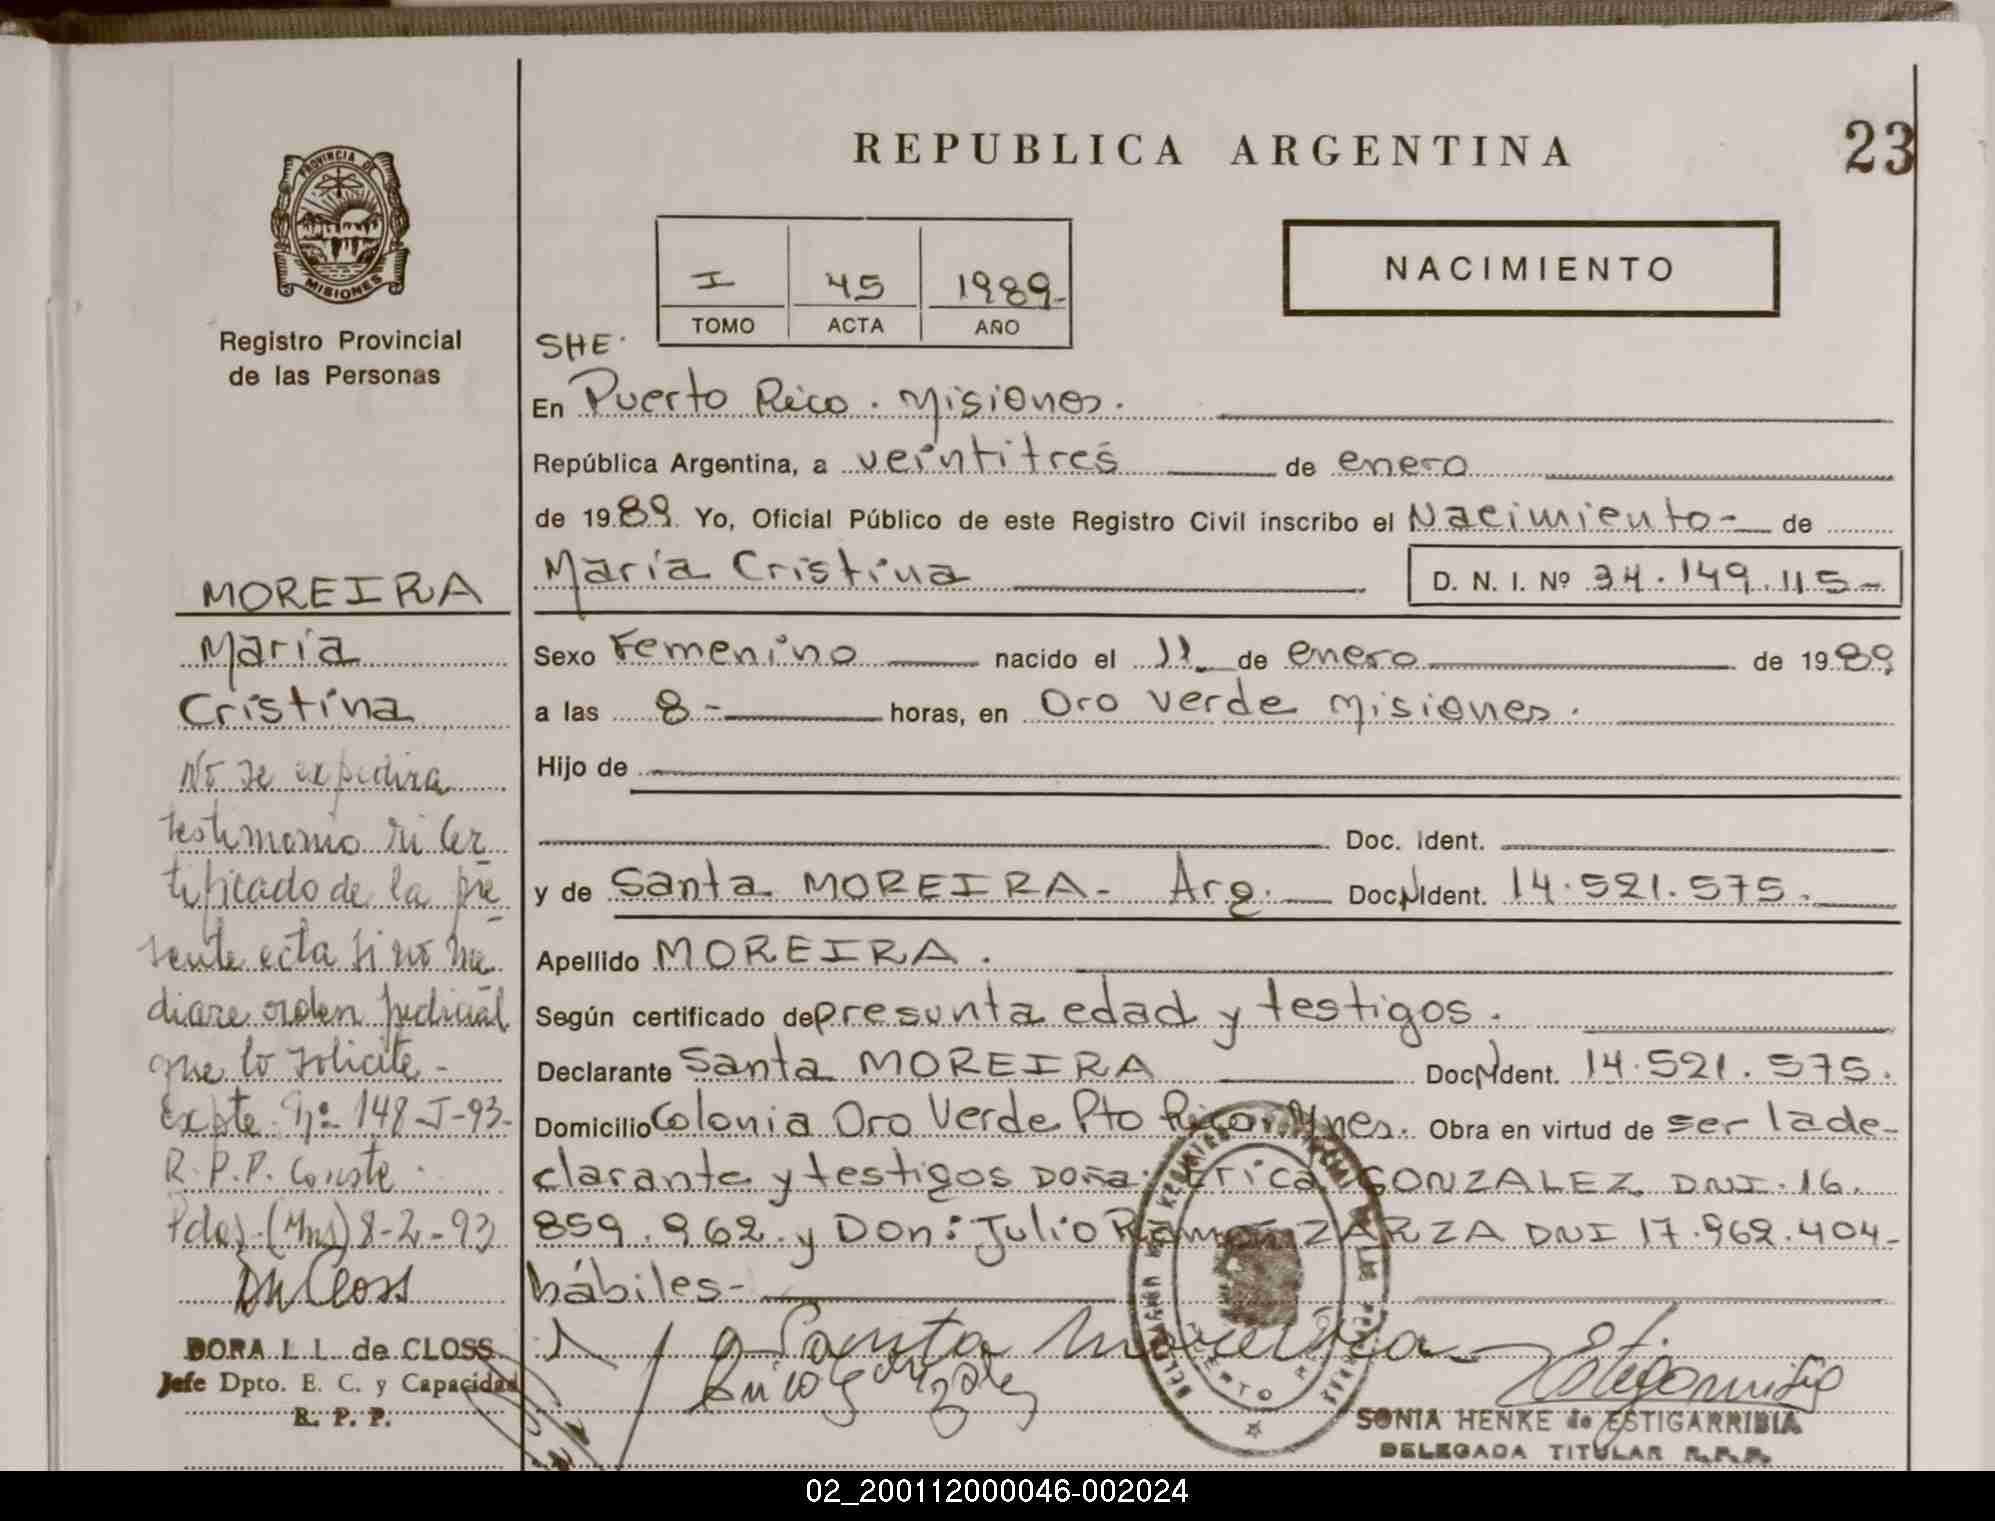 REPUBLICA ARGENTINA
23
PROVINCIA DE
MISIONES
Registro Provincial
de las Personas
I 45 1989-
TOMO ACTA AÑO
NACIMIENTO
SHE.
En Puerto Rico. Misiones.
República Argentina, a veintitres de enero
de 1989. Yo, Oficial Público de este Registro Civil inscribo el Nacimiento- de
María Cristina
D. N. I. Nº 34.149.115-
Sexo Femenino nacido el 11 de enero de 1989
a las 8- horas, en Oro Verde Misiones.
Hijo de
Doc. Ident.
y de Santa MOREIRA- Arg. Doc. Ident. 14.521.575.
Apellido MOREIRA.
Según certificado de presunta edad y testigos.
Declarante Santa MOREIRA Doc. Ident. 14.521.575.
Domicilio Colonia Oro Verde Pto Rico. Mnes. Obra en virtud de ser la de-
clarante y testigos Doña: Erica GONZALEZ DNI. 16.
859.962. y Don: Julio Ramón ZARZA DNI 17.962.404-
hábiles-
Santa Moreira
Erica Gonzalez
SONIA HENKE de ESTIGARRIBIA
DELEGADA TITULAR R.P.P.
MOREIRA
María
Cristina
No se expedira
testimonio ni cer
tificado de la pre
sente acta si no me
diare orden judicial
que lo solicite-
Expte. Nº 148-J-93-
R.P.P. Conste.
Pdas.-(Mns) 8-2-93
DORA I. L. de CLOSS
Jefe Dpto. E. C. y Capacidad
R. P. P.
02_200112000046-002024